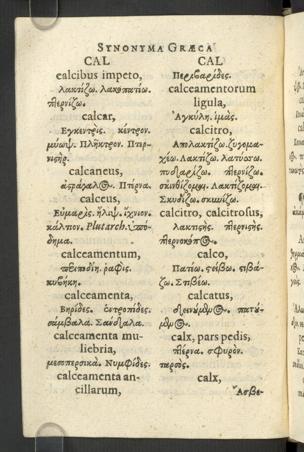 SYNONYMA GRÆCA
CAL
calcibus impeto,
λακτίζω. λακοπατέω.
πτερνίζω.
calcar,
Εγκεντρὶς. κέντρον.
μύωψ. Πλῆκτρον. Πτερ-
νιστὴρ.
calcaneus,
ἀστράγαλος. Πτέρνα.
calceus,
Εὔμαρὶς. ἤλιψ. ἴχνιον.
κάλτιον. Plutarch. ὑπό-
δημα.
calceamentum,
ῥαφὶς.
calceamenta,
Βηρίδες. ἐντροπίδες.
σάμβαλα. Σανδαλα.
calceamenta mu-
liebria,
μεσοπερσικὰ. Νυμφίδες.
calceamenta an-
cillarum,
CAL
Περιβαρίδες.
calceamentorum
ligula,
Αγκύλη. ἱμὰς.
calcitro,
Απολακτίζω. ζυγομα-
χέω. Λακτίζω. λατύσσω.
πυδαρίζω. πτερνίζω.
σκινθίζομαι. Λακτίζομαι.
Σκυδίζω.
calcitro, calcitrosus,
λακτιστὴς. πτερνιστὴς.
πτερνοκόπος.
calco,
Πατέω. στείβω. στιβά-
ζω. Στιβέω.
calcatus,
πατού-
μενος.
calx, pars pedis,
πτέρνα. σφυρὸν.
ταρσὸς.
calx,
Ἄσβε-